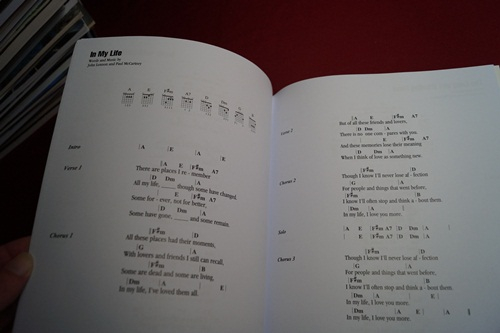 In My Life
Words and Music by
John Lennon and Paul McCartney
A E F#m A7 D Dm G B
Intro |A |E |A |E
Verse 1 |A E |F#m A7
There are places I re - member
|D Dm |A
All my life, ____ though some have changed.
|A E |F#m A7
Some for - ever, not for better,
|D Dm |A
Some have gone, ____ and some remain.
Chorus 1 |F#m |D
All these places had their moments,
|G |A
With lovers and friends I still can recall,
|F#m |B
Some are dead and some are living.
|Dm |A |E
In my life, I've loved them all.
Verse 2 |A E |F#m A7
But of all these friends and lovers,
|D Dm |A
There is no one com - pares with you.
|A E |F#m A7
And these memories lose their meaning
|D Dm |A
When I think of love as something new.
Chorus 2 |F#m |D
Though I know I'll never lose af - fection
|G |A
For people and things that went before,
|F#m |B
I know I'll often stop and think a - bout them.
|Dm |A
In my life, I love you more.
Solo |A E |F#m A7 |D Dm |A |
|A E |F#m A7 |D Dm |A |
Chorus 3 |F#m |D
Though I know I'll never lose af - fection
|G |A
For people and things that went before,
|F#m |B
I know I'll often stop and think a - bout them.
|Dm |A |E
In my life, I love you more.
|Dm |A |E |A
In my life, I love you more.